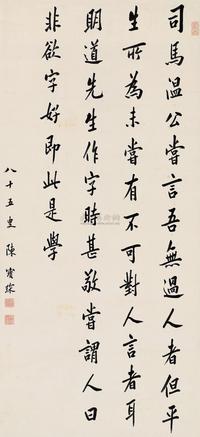 司馬溫公嘗言吾無過人者但平
生所為未嘗有不可對人言者耳
明道先生作字時甚敬嘗謂人曰
非欲字好即此是學
八十五叟 陳寶琛